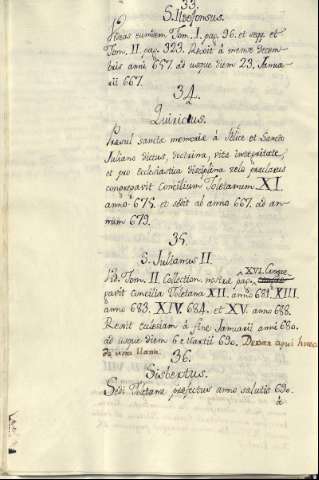 33.
S. Ildefonsus.
Vitas eumdem Tom. I. pag. 96. et seqq. et
Tom. II. pag. 323. Rexit à mense Decem-
bris anni 657. ad usque diem 23. Janua-
rii 667.
34.
Quiricus.
Praesul sanctae memoriae à Felice et Sancto
Juliano dictus, doctrina, vitae integritate,
et pro ecclesiastica disciplina zelo praeclarus
congregavit Concilium Toletanum XI.
anno 675. et sedit ab anno 667. ad an-
num 679.
35.
S. Julianus II.
Vid. Tom. II Collection. nostrae pag. XVI. Congre-
gavit concilia Toletana XII. anno 681. XIII.
anno 683. XIV. 684. et XV. anno 688.
Rexit ecclesiam à fine Januarii anni 680.
ad usque diem 6 Martii 690. Dexar aqui hueco
de una llana.
36.
Sisbertus.
Sedi Toletanae praefectus anno salutis 690.
à